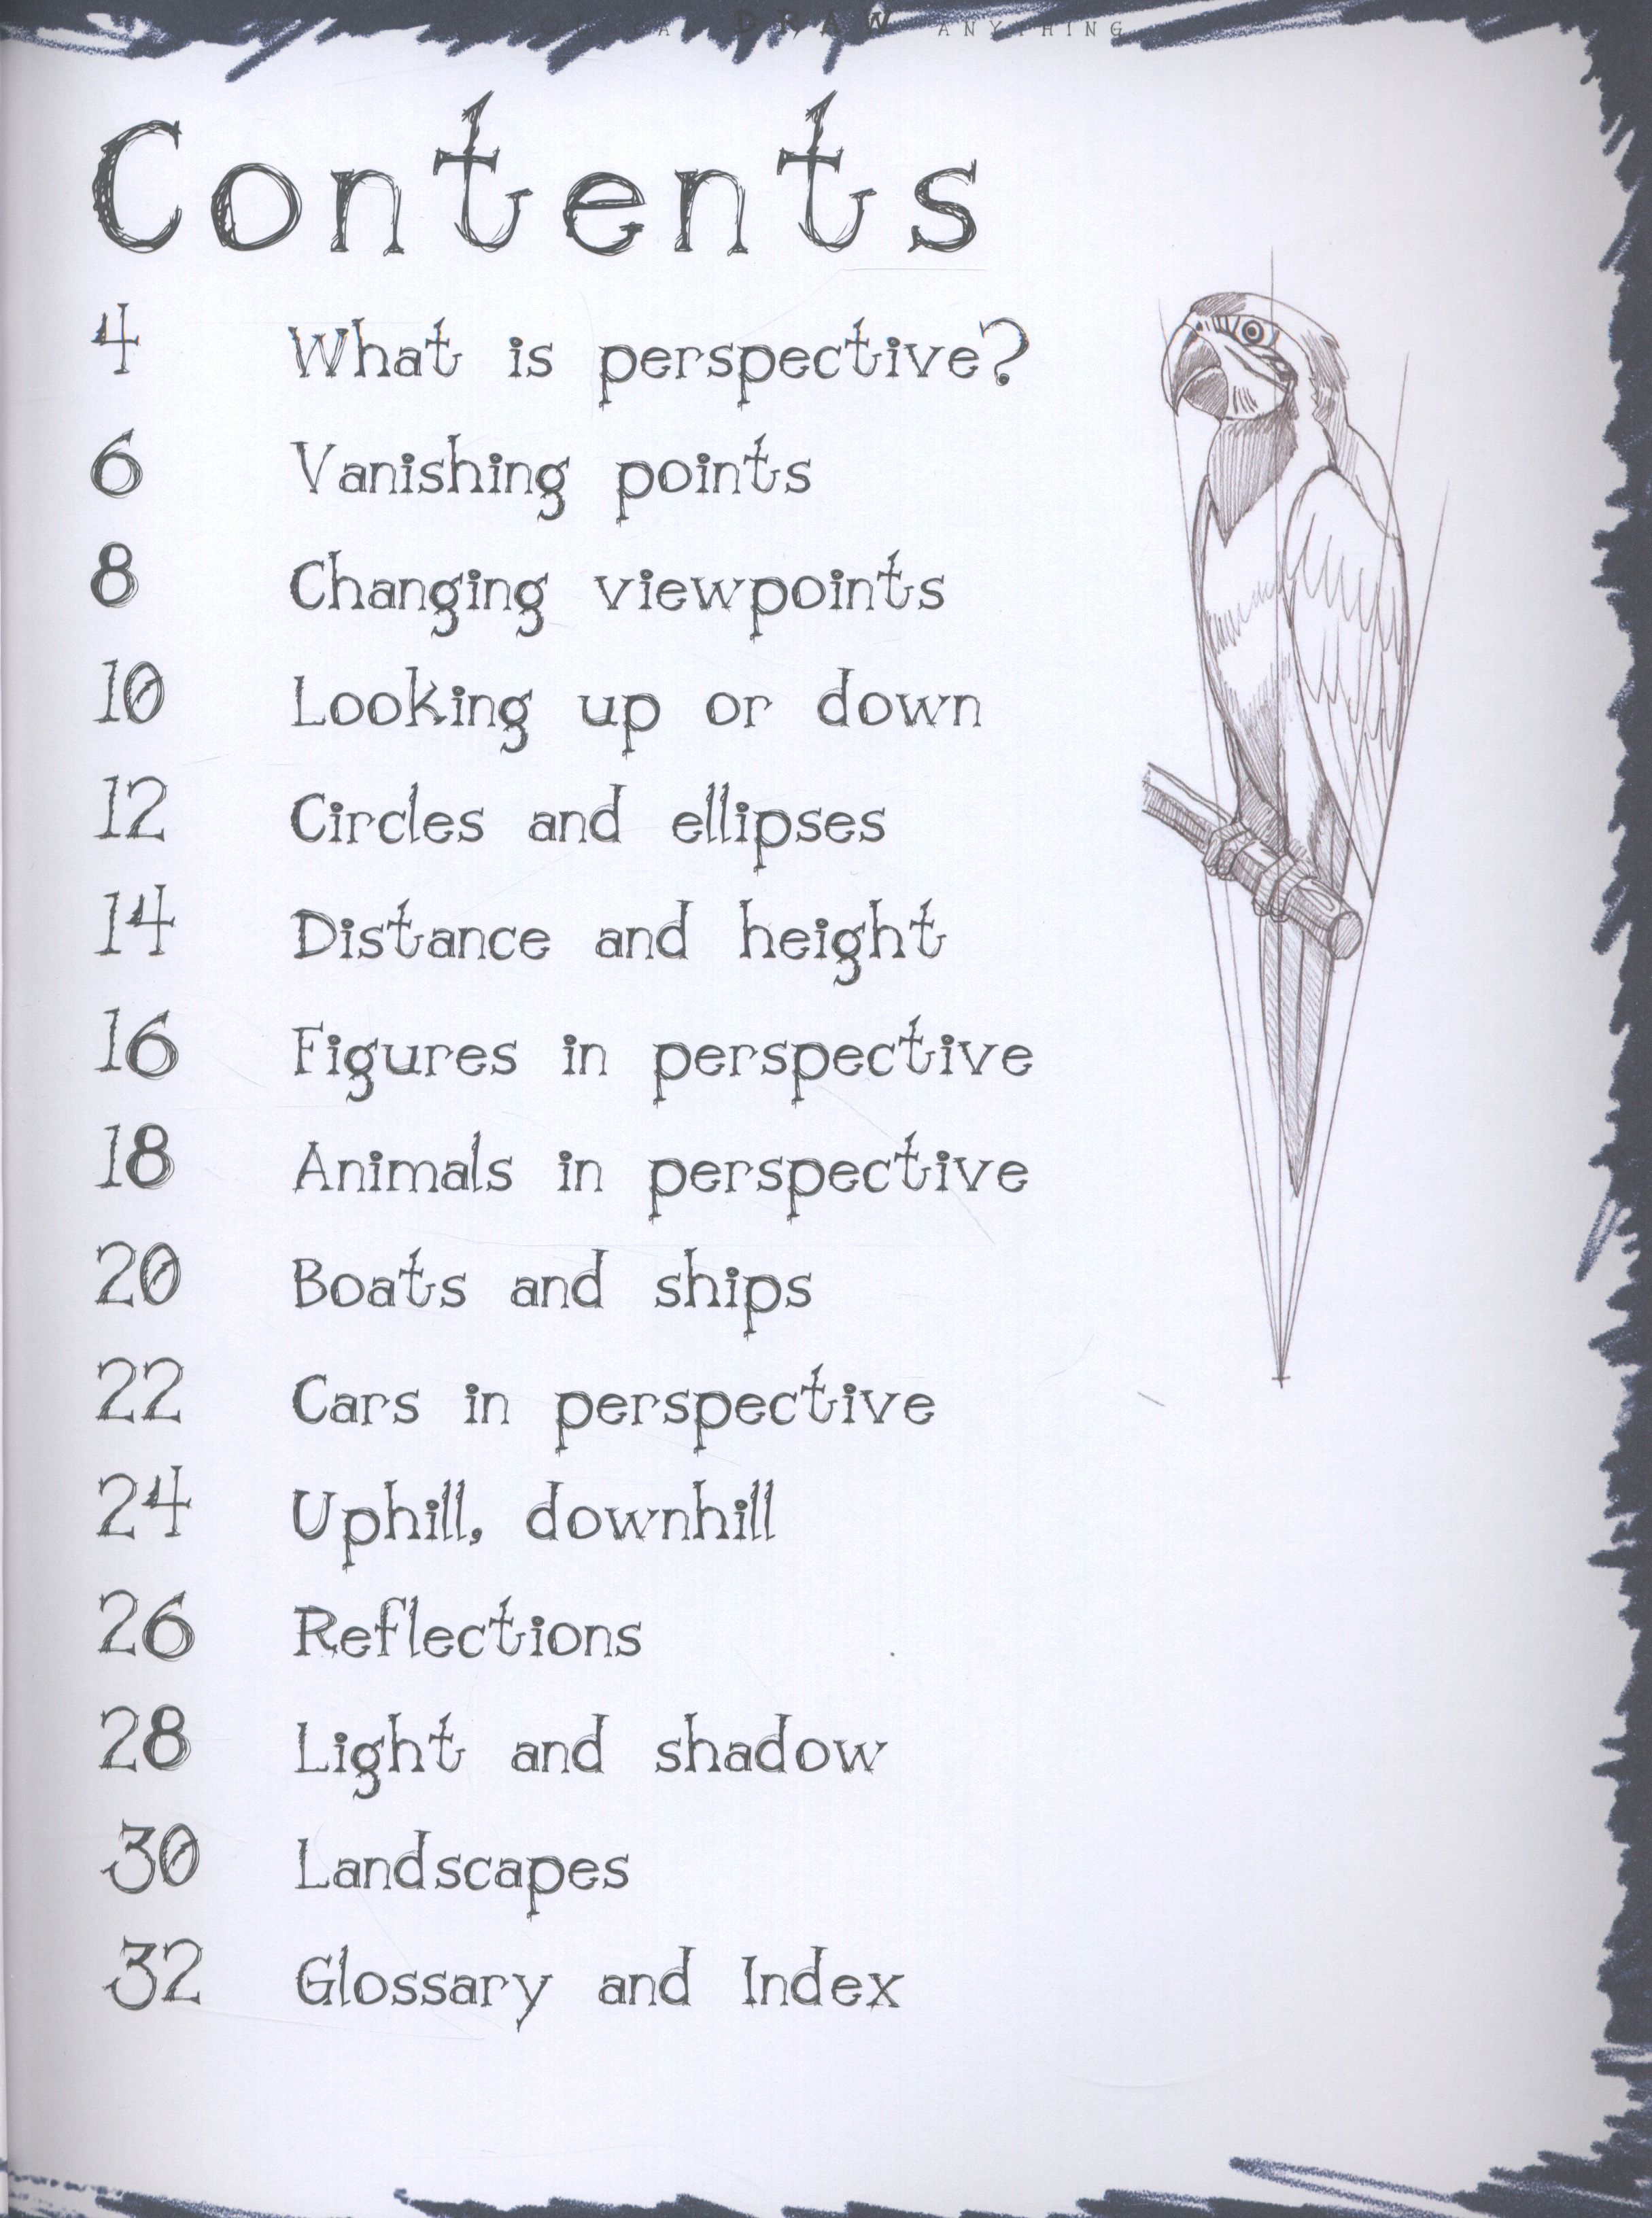 DRAW ANYTHING
Contents
4 What is perspective?
6 Vanishing points
8 Changing viewpoints
10 Looking up or down
12 Circles and ellipses
14 Distance and height
16 Figures in perspective
18 Animals in perspective
20 Boats and ships
22 Cars in perspective
24 Uphill, downhill
26 Reflections
28 Light and shadow
30 Landscapes
32 Glossary and Index